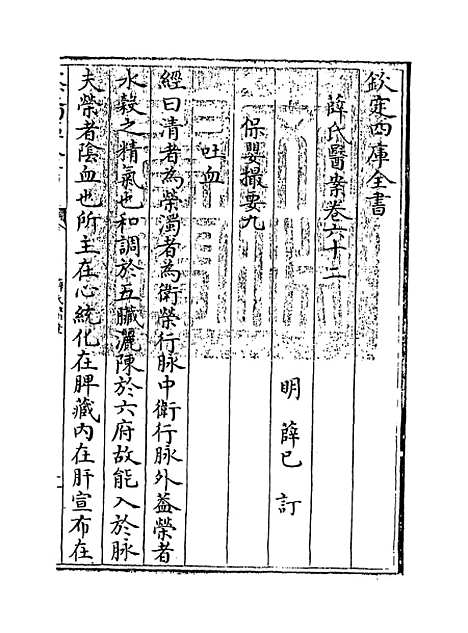 欽定四庫全書
薛氏醫案卷六十二
明 薛已 訂
保嬰撮要九
吐血
經曰清者為榮濁者為衛榮行脉中衛行脉外葢榮者
水穀之精氣也和調於五臟灑陳於六府故能入於脉
夫榮者陰血也所主在心統化在脾藏内在肝宣布在